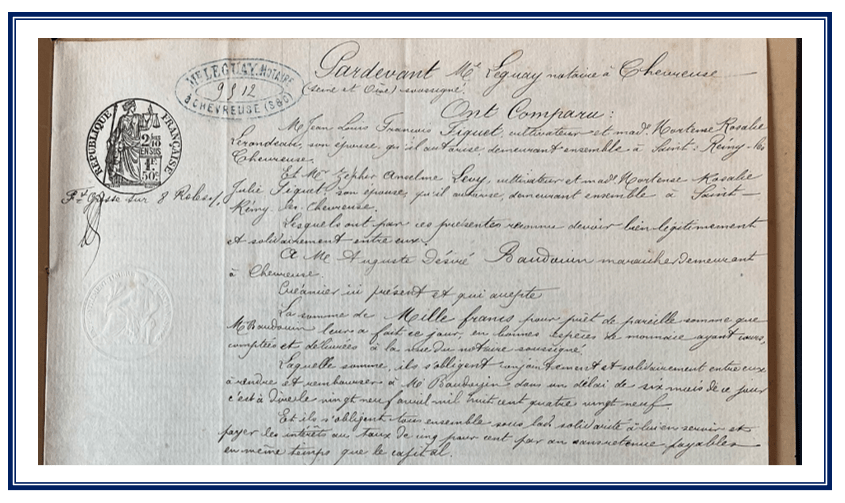 Me LEGUAY, NOTAIRE
9512
à CHEVREUSE (S&O)
RÉPUBLIQUE FRANÇAISE
2/10
EN SUS
1F
50c
Pardevant Me Leguay notaire à Chevreuse
(Seine et Oise) soussigné.
Ont Comparu :
M. Jean Louis François Piquet, cultivateur et made Hortense Rosalie
son épouse qu'il autorise demeurant ensemble à Saint-Remy-les
Chevreuse.
Et Mr Zéphir Anselme Levy, cultivateur et made Hortense Rosalie
Julie Piquet son épouse, qu'il autorise, demeurant ensemble à Saint-
Rémy-les-Chevreuse.
Gde Grosse sur 8 Roles
Lesquels ont par ces présentes reconnu devoir bien légitimement
et solidairement entre eux.
A Mr Auguste Désiré Baudouin maraicher demeurant
à Chevreuse.
Créancier ici présent et qui accepte
La somme de Mille francs pour prêt de pareille somme que
M Baudouin leur a fait ce jour, en bonnes espèces de monnaie ayant cours,
comptées et délivrées à la vue du notaire soussigné
Laquelle somme, ils s'obligent conjointement et solidairement entre eux
à rendre et rembourser à Mr Baudouin dans un délai de six mois de ce jour
c'est à dire le vingt neuf avril mil huit cent quatre vingt neuf
Et ils s'obligent tous ensemble sous lad solidarité à lui en servir et
payer les intérêts au taux de cinq pour cent par an sans retenue payables
en même temps que le capital.